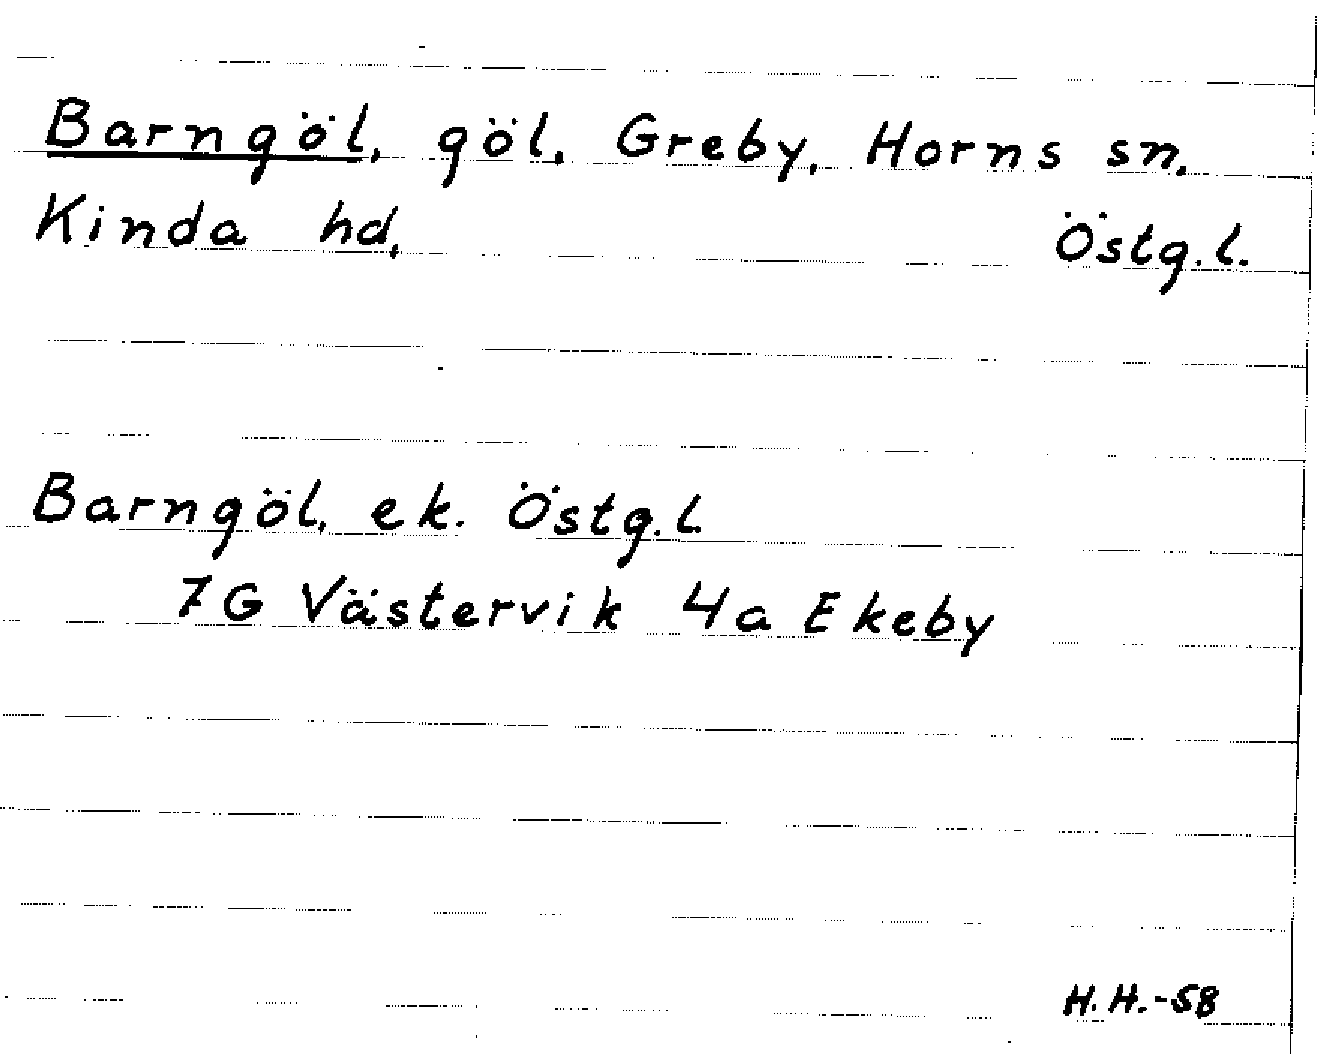 Barngöl, göl, Greby, Horns sn,
Kinda hd, Östg.l.
Barngöl, ek. Östg.l.
7G Västervik 4a Ekeby
H.H.-58